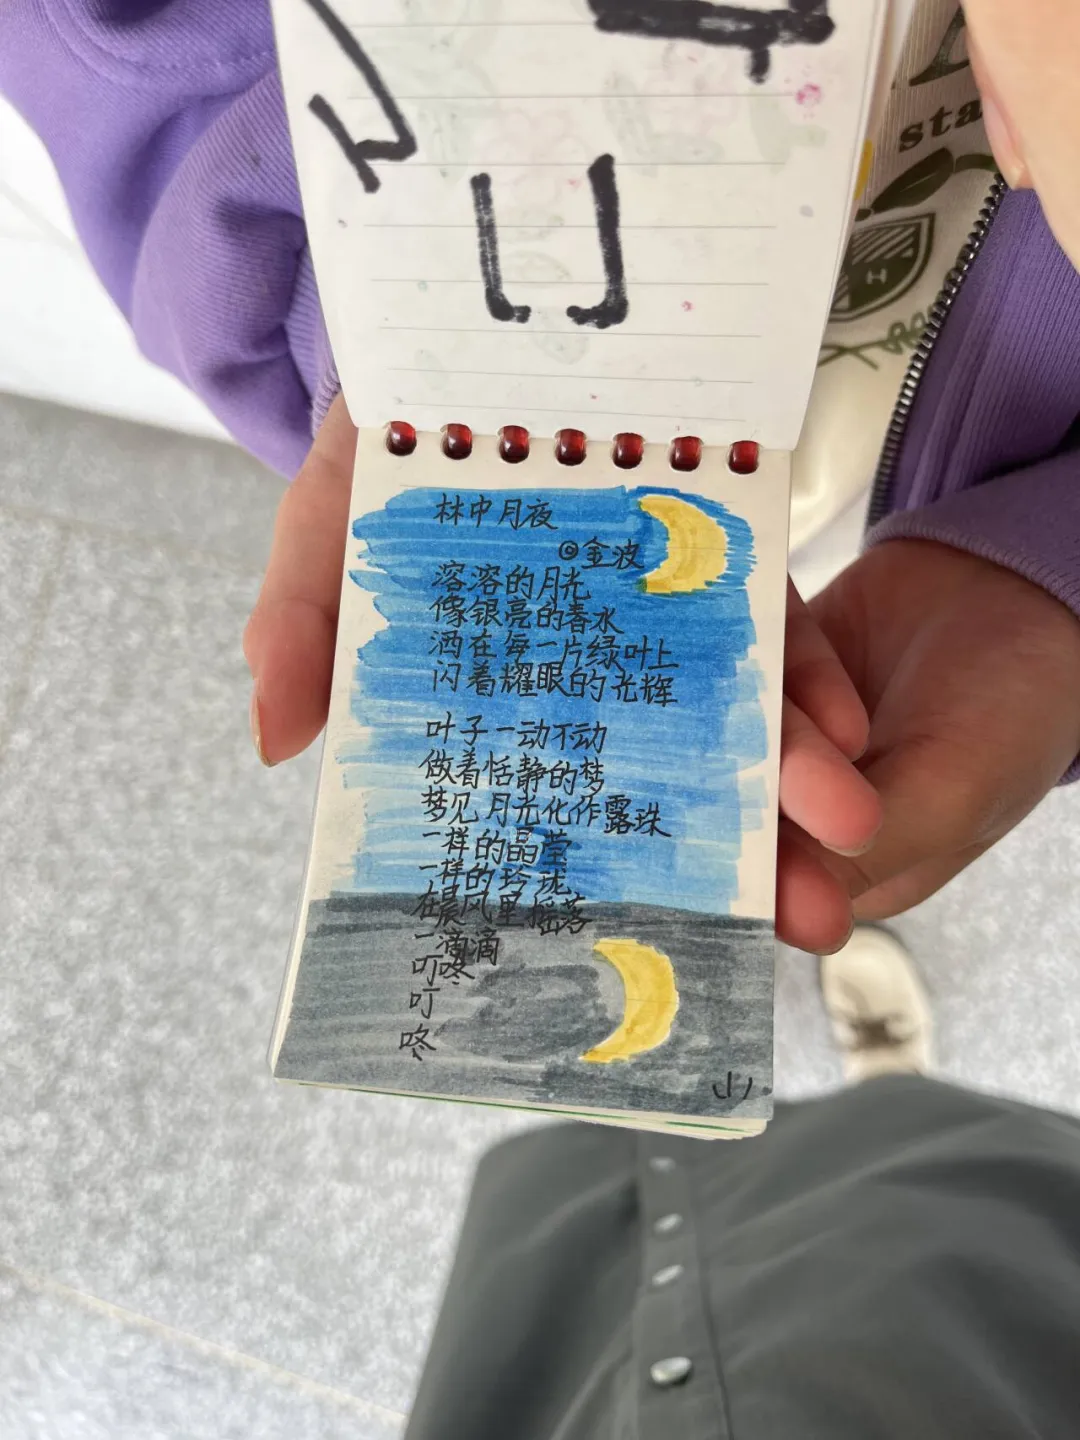 sta
林中月夜
◎金波
溶溶的月光
像银亮的春水
洒在每一片绿叶上
闪着耀眼的光辉
叶子一动不动
做着恬静的梦
梦见月光化作露珠
一样的晶莹
一样的玲珑
在晨风里摇落
一滴滴
叮咚
叮
咚